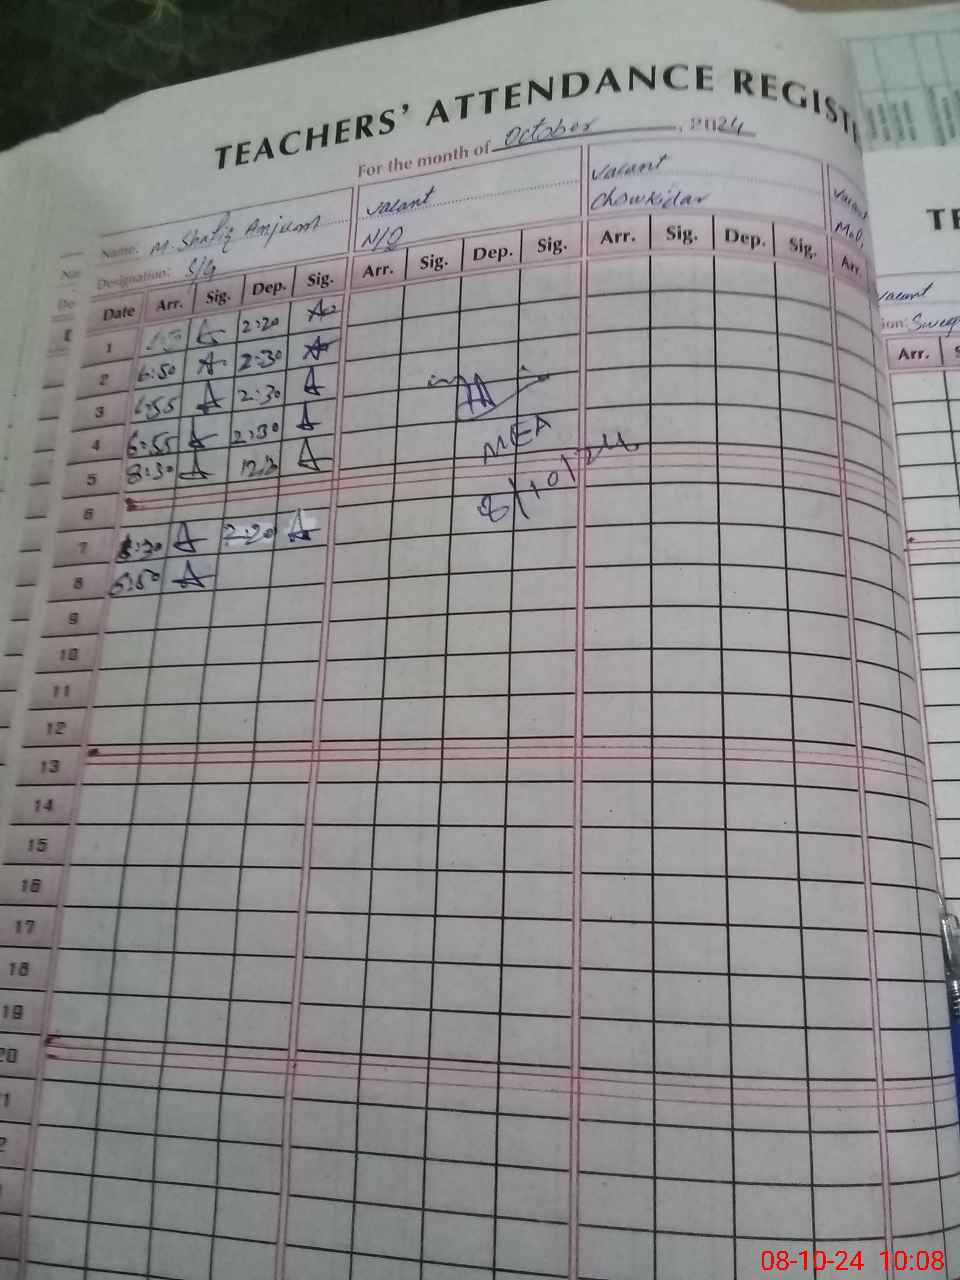 TEACHERS' ATTENDANCE REGIST
For the month of October, 2024
Name: M. Shafiq Anjum
vacant
vacant
Designation: S/G
N/Q
Chowkidar
Date Arr. Sig. Dep. Sig. Arr. Sig. Dep. Sig. Arr. Sig. Dep. Sig. Arr.
1 2:20
2 6:50 2:30
3 6:55 2:30
4 6:55 2:30
5 8:30
MEA
6
8/10/24
7 2:20
8 6:50
9
10
11
12
13
14
15
16
17
18
19
20
TE
vacant
ion: Sweep
Arr. S
08-10-24 10:08